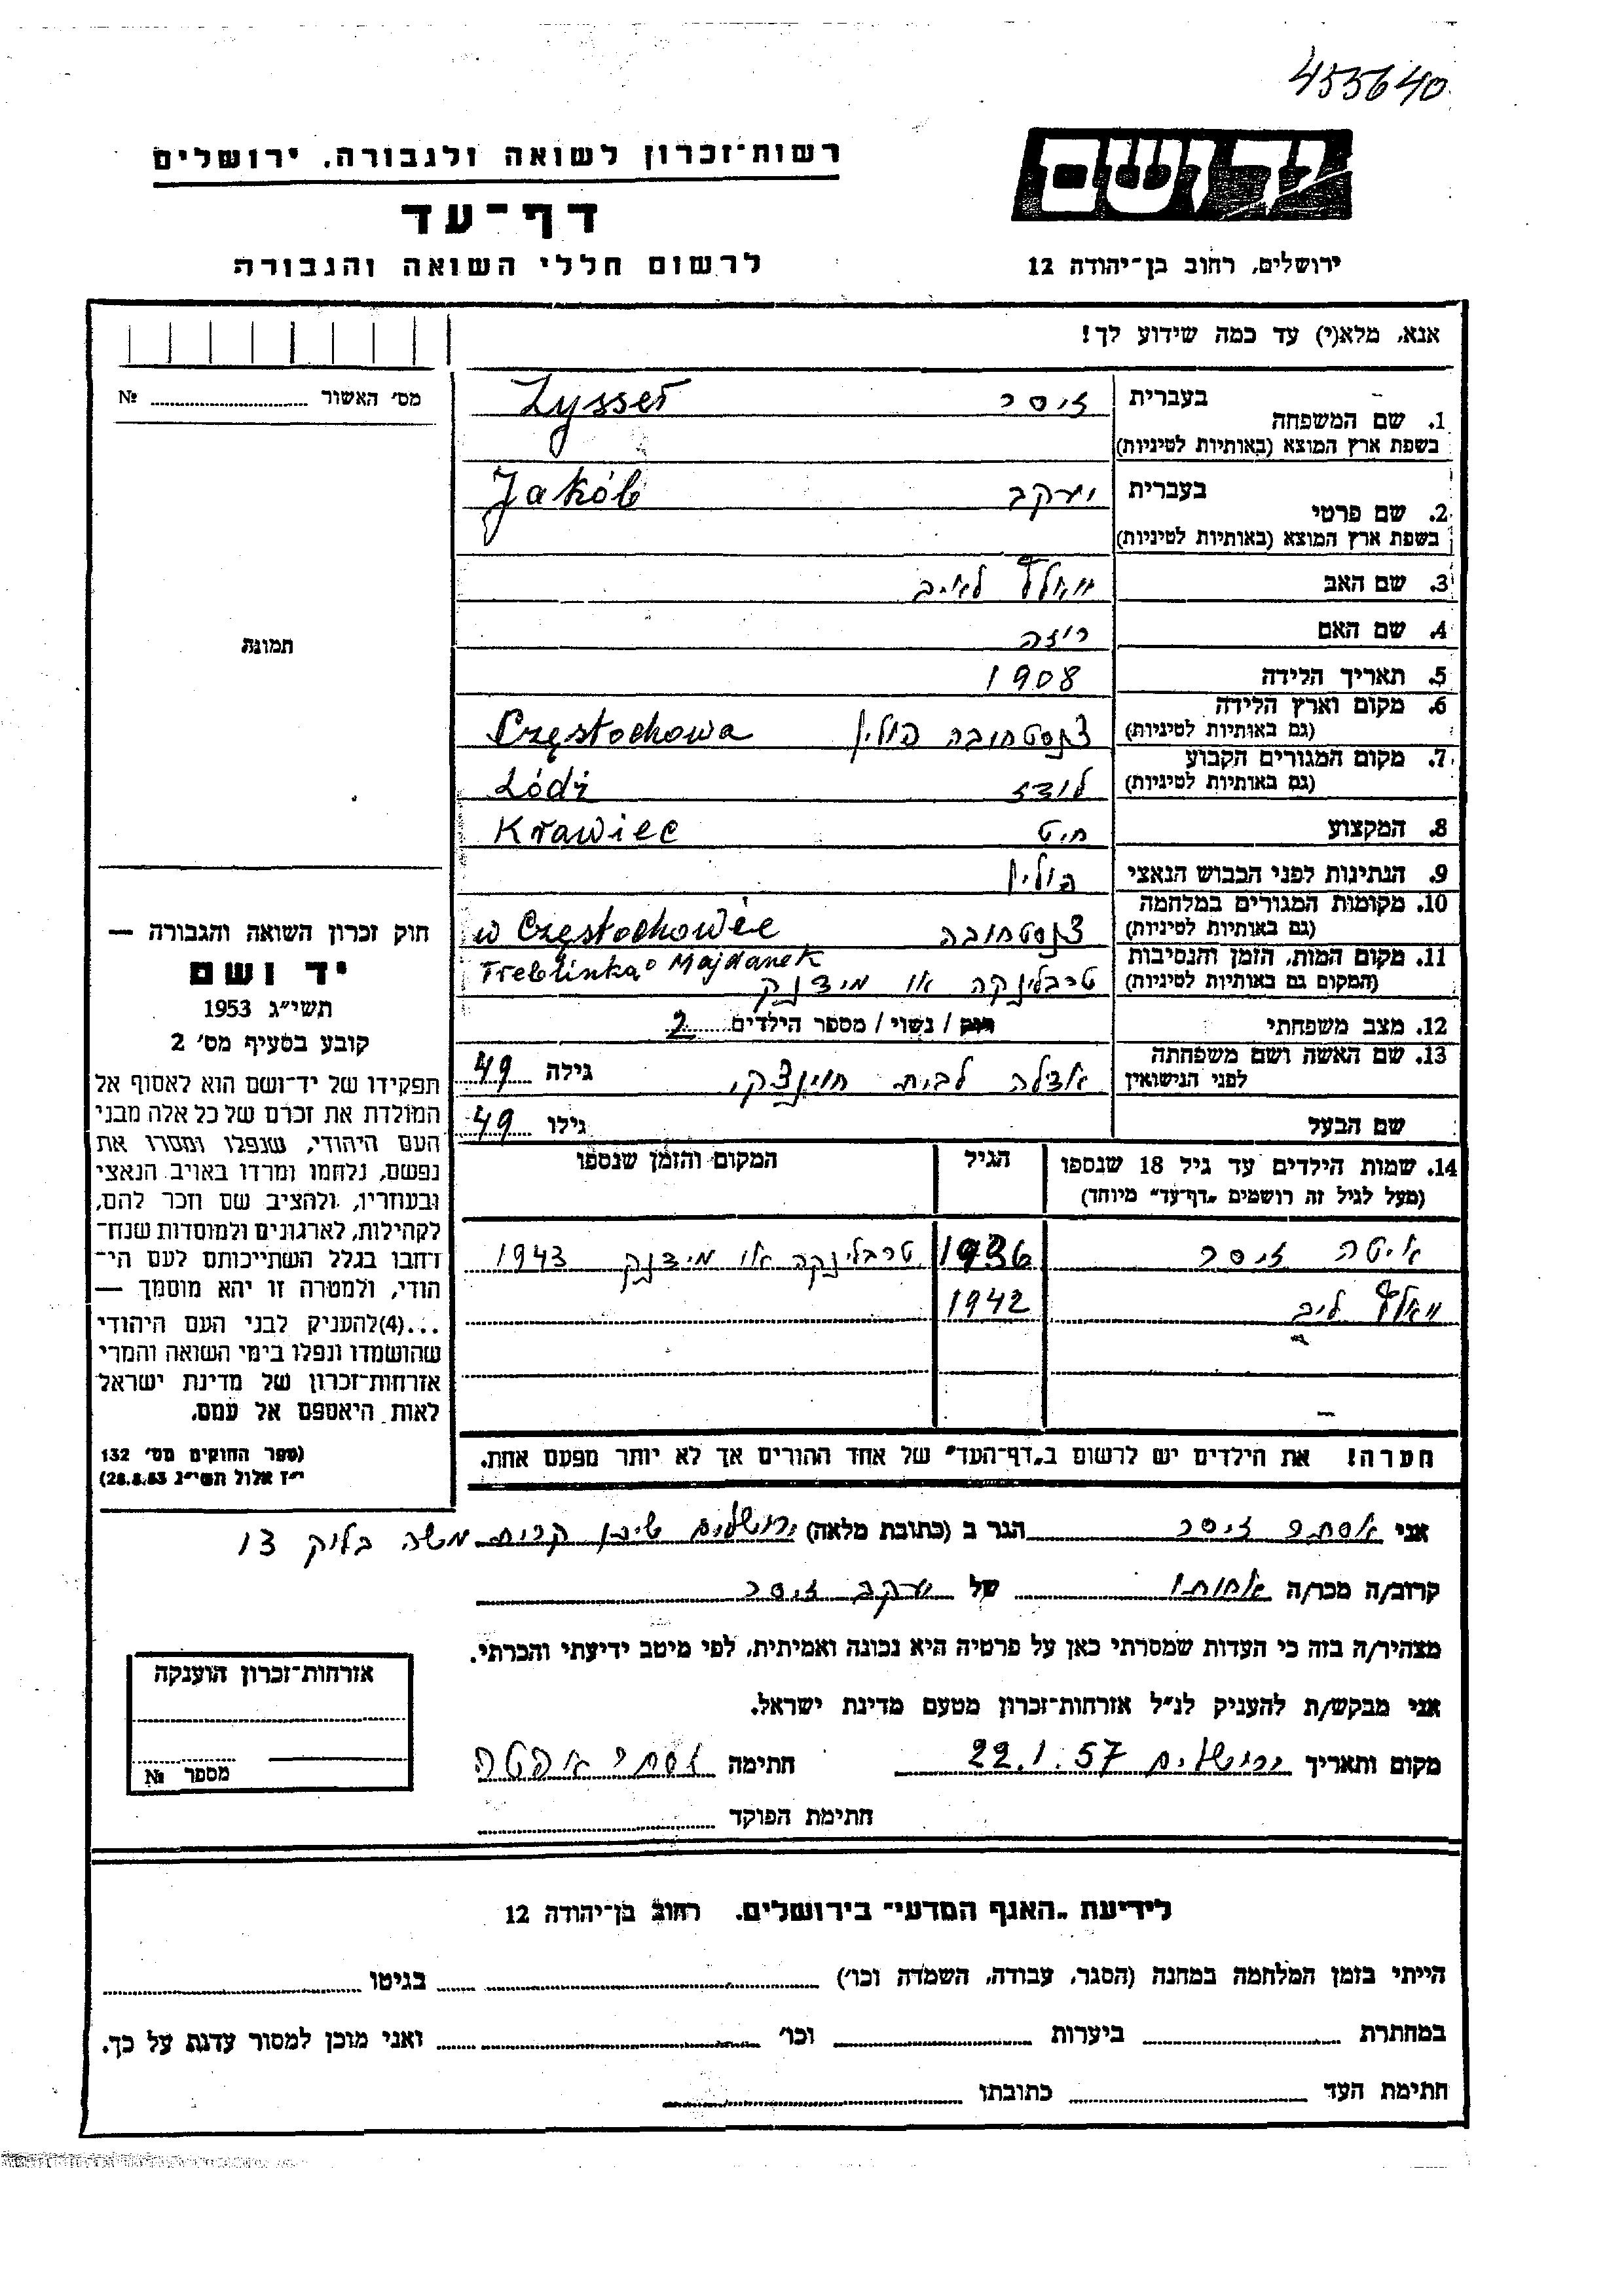 455640
רשות־זכרון לשואה ולגבורה, ירושלים
דף־עד
לרשום חללי השואה והגבורה
יד ושם
ירושלים, רחוב בן־יהודה 12
אנא, מלא(י) עד כמה שידוע לך!
מס׳ האשור № 
בעברית זיסר Zysser
1. שם המשפחה
בשפת ארץ המוצא (באותיות לטיניות)
בעברית יעקב Jakób
2. שם פרטי
בשפת ארץ המוצא (באותיות לטיניות)
3. שם האב וואלף לאיב
4. שם האם רוזה
5. תאריך הלידה 1908
6. מקום וארץ הלידה
(גם באותיות לטיניות) צנסטחובה פולין Częstochowa
7. מקום המגורים הקבוע
(גם באותיות לטיניות) לודז Łódź
8. המקצוע חיט Krawiec
9. הנתינות לפני הכבוש הנאצי פולין
10. מקומות המגורים במלחמה
(גם באותיות לטיניות) צנסטחובה w Częstochowie
11. מקום המות, הזמן והנסיבות Treblinka o Majdanek
(המקום גם באותיות לטיניות) טרבלינקה או מידנק
12. מצב משפחתי רוק / נשוי / מספר הילדים 2
13. שם האשה ושם משפחתה
לפני הנישואין אדלה לבית גילה 49
שם הבעל גילו 49
14. שמות הילדים עד גיל 18 שנספו הגיל המקום והזמן שנספו
(מעל לגיל זה רושמים „דף־עד״ מיוחד)
איטה זיסר 1936 טרבלינקה או מידנק 1943
וואלף ליב 1942
הערה! את הילדים יש לרשום ב„דף־העד״ של אחד ההורים אך לא יותר מפעם אחת.
תמונה
חוק זכרון השואה והגבורה —
יד ושם
תשי״ג 1953
קובע בסעיף מס׳ 2
תפקידו של יד־ושם הוא לאסוף אל
המולדת את זכרם של כל אלה מבני
העם היהודי, שנפלו ומסרו את
נפשם, נלחמו ומרדו באויב הנאצי
ובעוזריו, ולהציב שם וזכר להם,
לקהילות, לארגונים ולמוסדות שנח־
רבו בגלל השתייכותם לעם הי־
הודי, ולמטרה זו יהא מוסמך —
...(4)להעניק לבני העם היהודי
שהושמדו ונפלו בימי השואה והמרי
אזרחות־זכרון של מדינת ישראל
לאות היאספם אל עמם.
(ספר החוקים מס׳ 132
י״ז אלול תשי״ג 28.8.53)
אני אסתר זיסר הגר ב (כתובת מלאה) ירושלים שיכון קרית משה בלוק 13
קרוב/ה מכר/ה אחותו של יעקב זיסר
מצהיר/ה בזה כי העדות שמסרתי כאן על פרטיה היא נכונה ואמיתית, לפי מיטב ידיעתי והכרתי.
אני מבקש/ת להעניק לנ״ל אזרחות־זכרון מטעם מדינת ישראל.
מקום ותאריך ירושלים 22.1.57 חתימה
חתימת הפוקד
אזרחות־זכרון הוענקה
מספר №
לידיעת „האגף המדעי״ בירושלים. רחוב בן־יהודה 12
הייתי בזמן המלחמה במחנה (הסגר, עבודה, השמדה וכו׳) בגיטו
במחתרת ביערות וכו׳ ואני מוכן למסור עדות על כך.
חתימת העד כתובתו